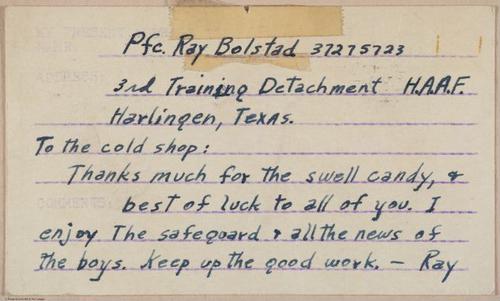 MY PRESENT
NAME
Pfc. Ray Bolstad 37275723
ADDRESS:
3rd Training Detachment H.A.A.F.
Harlingen, Texas.
To the cold shop:
Thanks much for the swell candy, &
COMMENTS:
best of luck to all of you. I
enjoy The safeguard & all the news of
the boys. Keep up the good work. – Ray